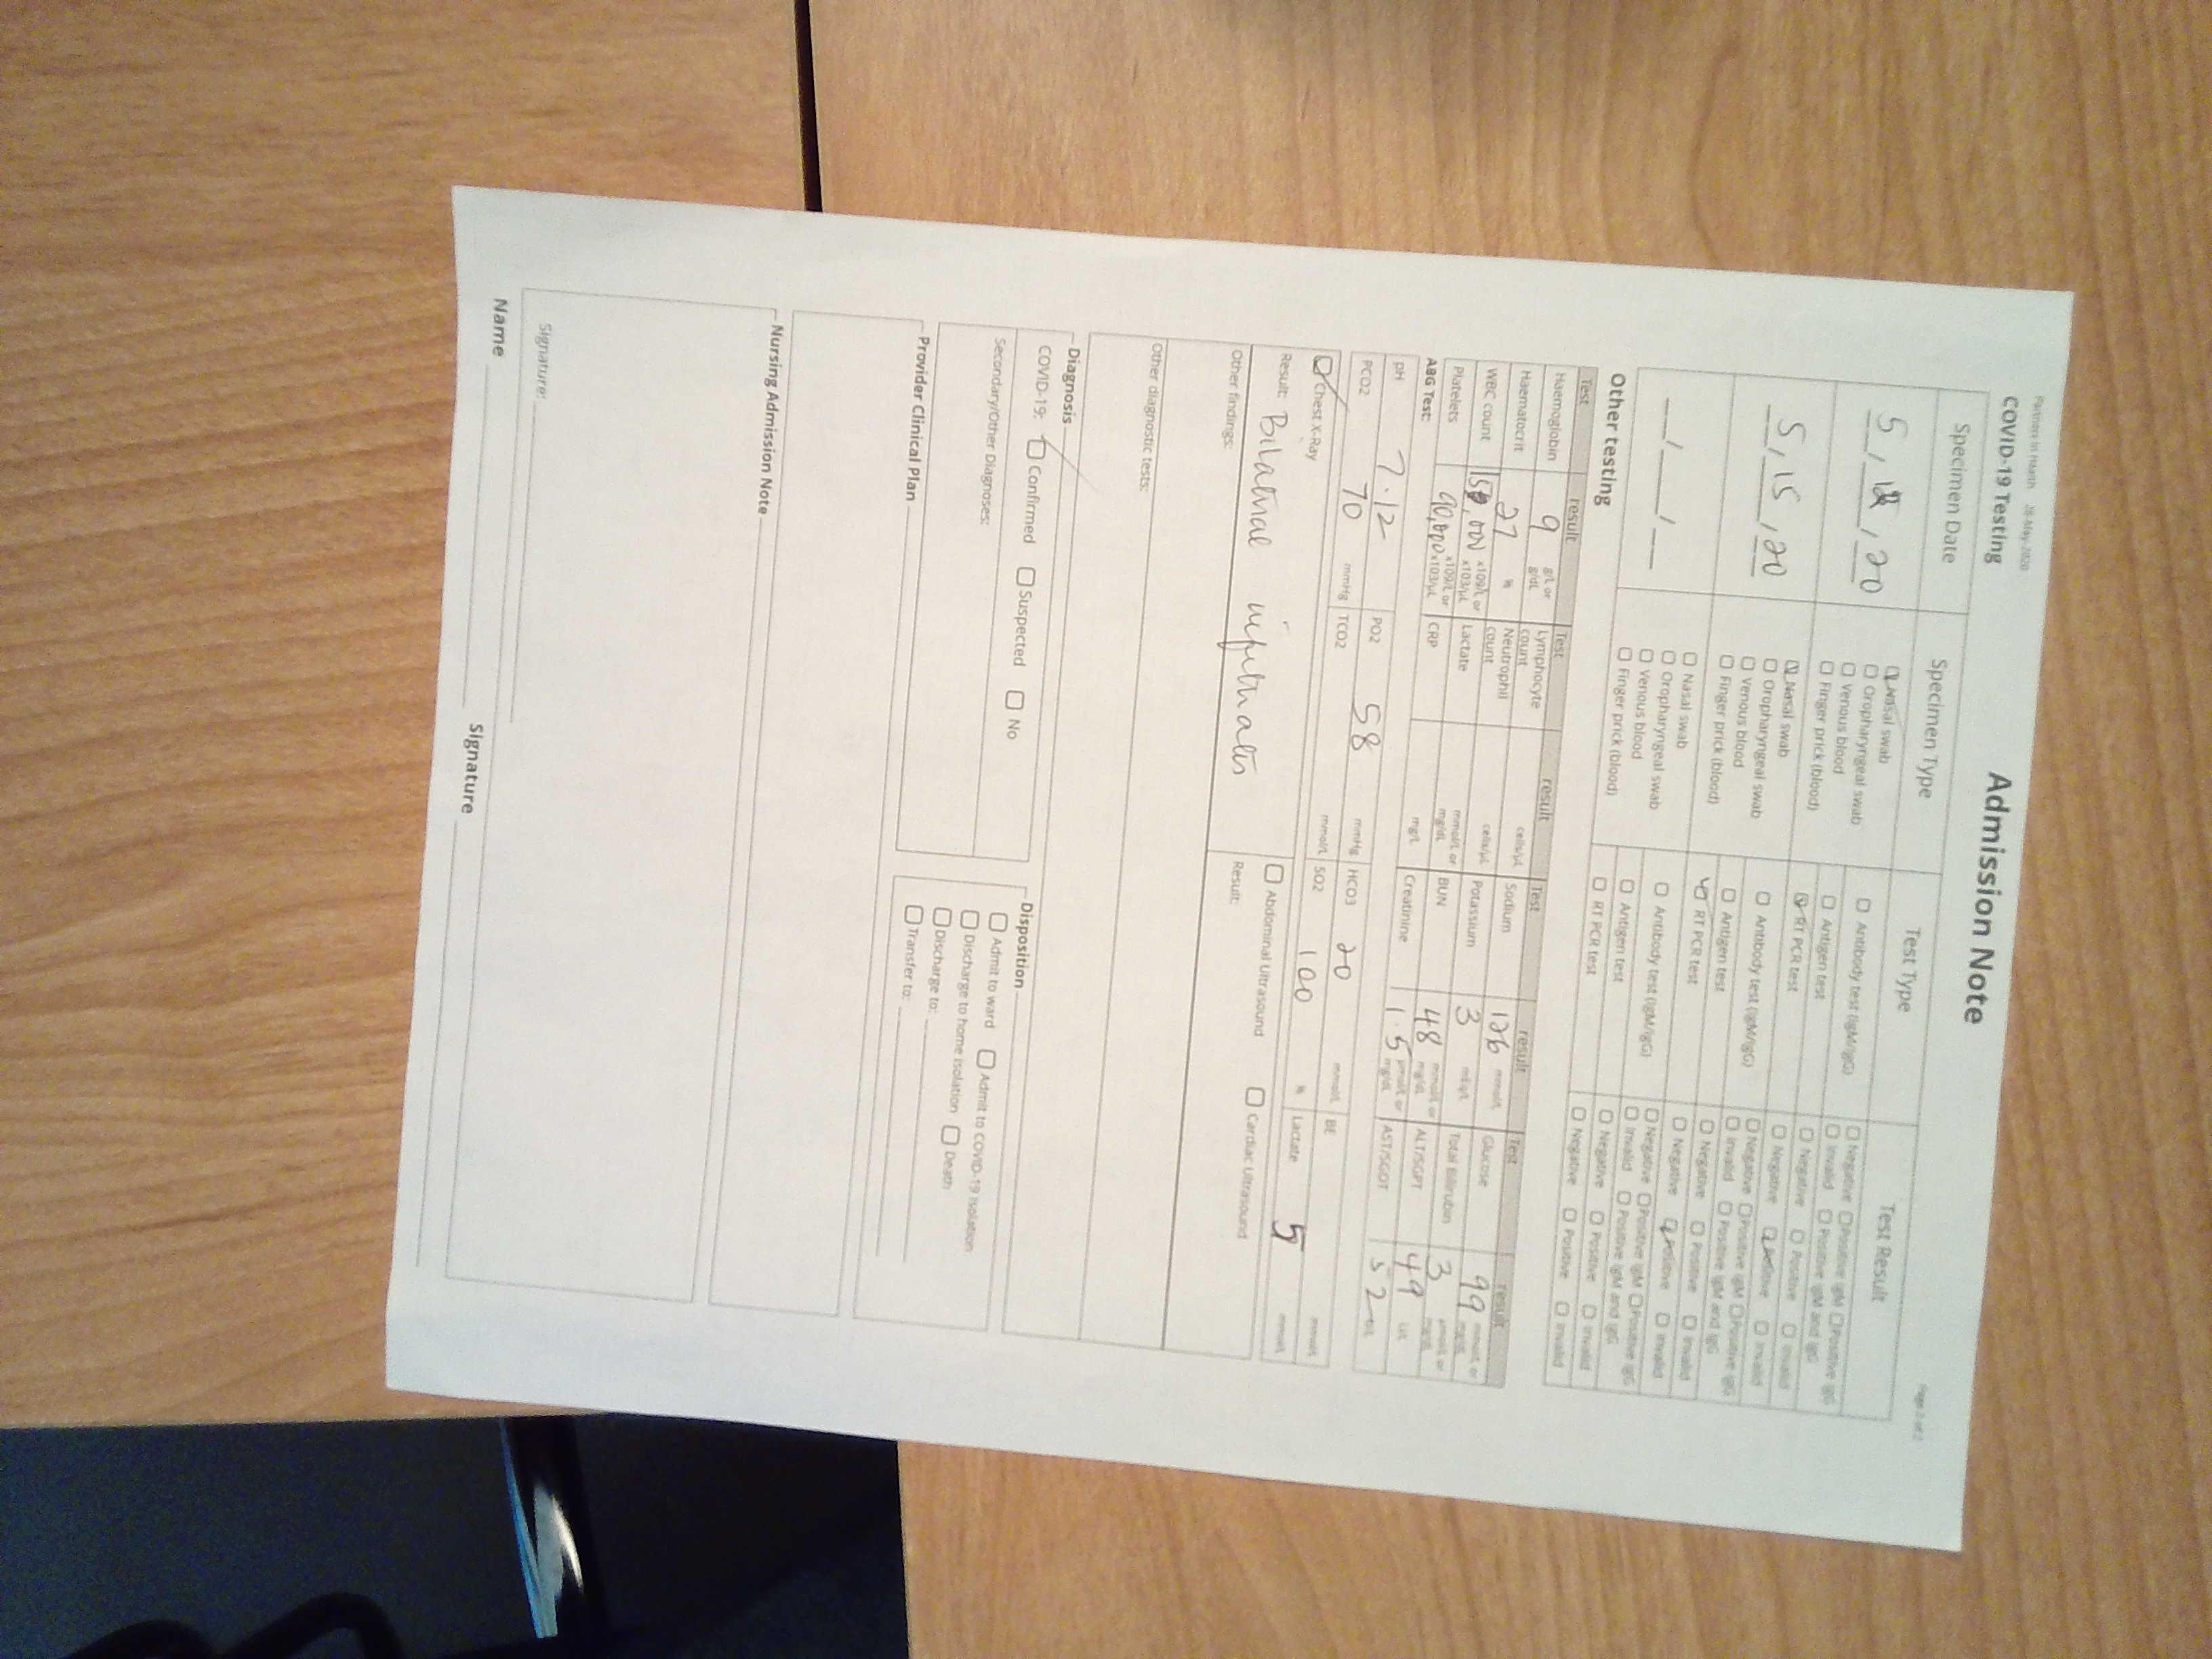 Partners In Health 28-May-2020
Page 2 of 2
Admission Note
COVID-19 Testing
Specimen Date Specimen Type Test Type Test Result
5 / 12 / 20
☑ Nasal swab
☐ Oropharyngeal swab
☐ Venous blood
☐ Finger prick (blood)
☐ Antibody test (IgM/IgG)
☐ Antigen test
☑ RT PCR test
☐ Negative ☐ Positive IgM ☐ Positive IgG
☐ Invalid ☐ Positive IgM and IgG
☐ Negative ☐ Positive ☐ Invalid
☐ Negative ☑ Positive ☐ Invalid
5 / 15 / 20
☑ Nasal swab
☐ Oropharyngeal swab
☐ Venous blood
☐ Finger prick (blood)
☐ Antibody test (IgM/IgG)
☐ Antigen test
☑ RT PCR test
☐ Negative ☐ Positive IgM ☐ Positive IgG
☐ Invalid ☐ Positive IgM and IgG
☐ Negative ☐ Positive ☐ Invalid
☐ Negative ☑ Positive ☐ Invalid
__ / __ / __
☐ Nasal swab
☐ Oropharyngeal swab
☐ Venous blood
☐ Finger prick (blood)
☐ Antibody test (IgM/IgG)
☐ Antigen test
☐ RT PCR test
☐ Negative ☐ Positive IgM ☐ Positive IgG
☐ Invalid ☐ Positive IgM and IgG
☐ Negative ☐ Positive ☐ Invalid
☐ Negative ☐ Positive ☐ Invalid
Other testing
Test result Test result Test result Test result
Haemoglobin 9 g/L or g/dL Lymphocyte count cells/µL Sodium 126 mmol/L Glucose 99 mmol/L or mg/dL
Haematocrit 27 % Neutrophil count cells/µL Potassium 3 mEq/L Total Bilirubin 3 µmol/L or mg/dL
WBC count ,000 x109/L or x103/µL Lactate mmol/L or mg/dL BUN 48 mmol/L or mg/dL ALT/SGPT 49 U/L
Platelets 90,000 x109/L or x103/µL CRP mg/L Creatinine 1.5 µmol/L or mg/dL AST/SGOT 52 U/L
ABG Test:
pH 7.12 PO2 58 mmHg HCO3 20 mmol/L BE mmol/L
PCO2 70 mmHg TCO2 mmol/L SO2 100 % Lactate 5 mmol/L
☑ Chest X-Ray ☐ Abdominal Ultrasound ☐ Cardiac Ultrasound
Result: Bilateral infiltrates Result:
Other findings:
Other diagnostic tests:
Diagnosis
COVID-19: ☑ Confirmed ☐ Suspected ☐ No
Secondary/Other Diagnoses:
Disposition
☐ Admit to ward ☐ Admit to COVID-19 isolation
☐ Discharge to home isolation ☐ Death
☐ Discharge to:
☐ Transfer to:
Provider Clinical Plan
Nursing Admission Note
Signature:
Name Signature